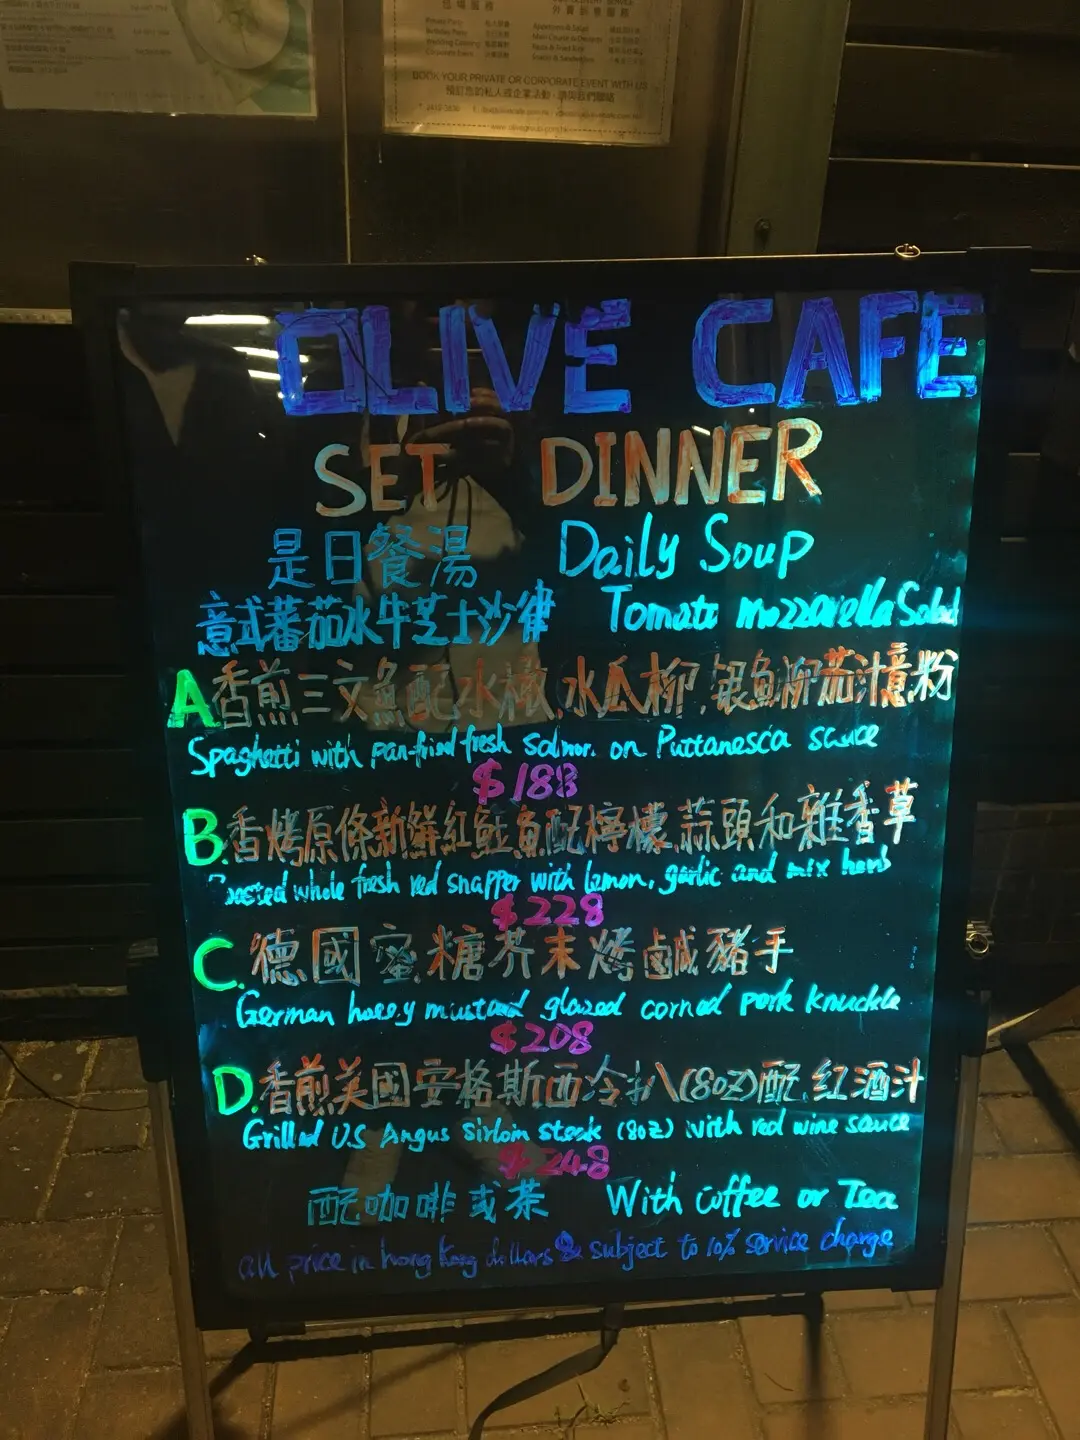 BOOK YOUR PRIVATE OR CORPORATE EVENT WITH US
OLIVE CAFE
SET DINNER
是日餐湯 Daily Soup
意式蕃茄水牛芝士沙律 Tomato mozzarella Salad
A 香煎三文魚配水欖,水瓜柳,銀魚柳茄汁意粉
Spaghetti with pan-fried fresh Salmon on Puttanesca sauce
$188
B. 香烤原條新鮮紅鮭魚配檸檬,蒜頭和雜香草
Roasted whole fresh red snapper with lemon, garlic and mix herb
$228
C. 德國蜜糖芥末烤鹹豬手
German honey mustard glazed corned pork knuckle
$208
D. 香煎美國安格斯西冷扒(8oz)配紅酒汁
Grilled U.S Angus Sirloin steak (8oz) with red wine sauce
$248
配咖啡或茶 With Coffee or Tea
all price in hong kong dollars & subject to 10% service charge